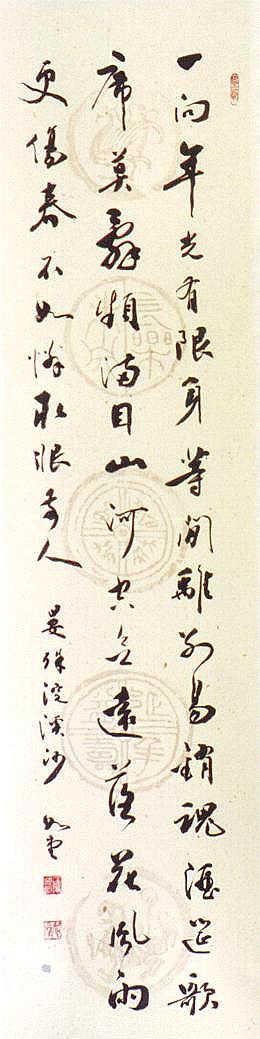 一向年光有限身等閒離別易銷魂酒筵歌
席莫辭頻滿目山河空念遠落花風雨
更傷春不如憐取眼前人 晏殊浣溪沙 如